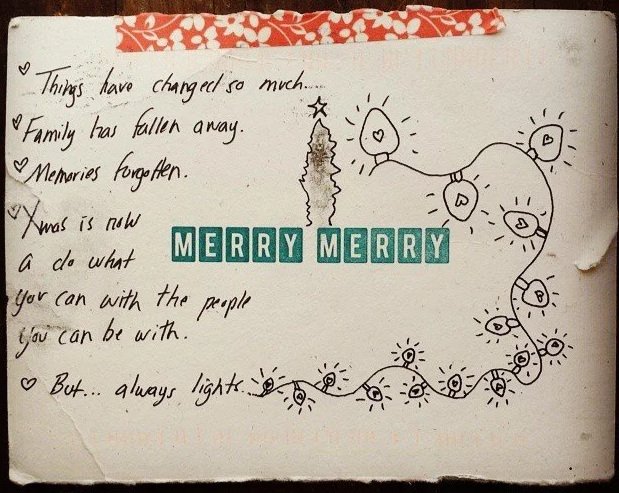 Things have changed so much...
Family has fallen away.
Memories forgotten.
Xmas is now
a do what
you can with the people
you can be with.
But... always lights...
MERRY MERRY